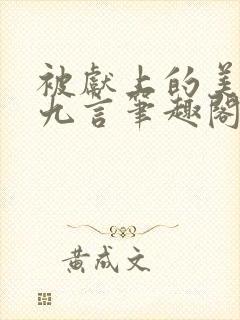 被献上的美
九言笔趣阁
黄成文